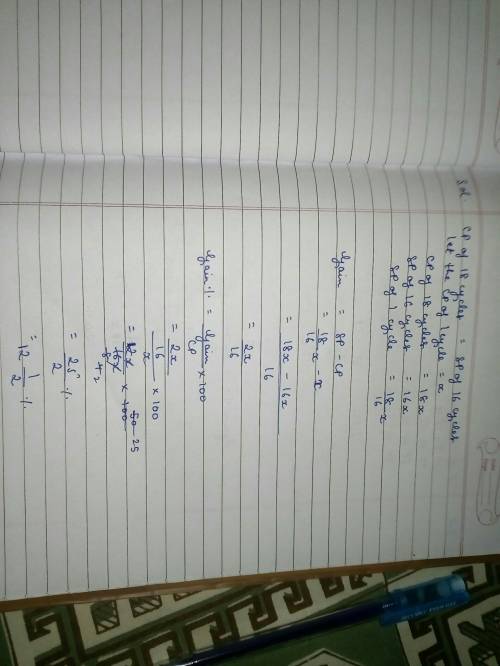 Sol
CP of 18 cycles = SP of 16 cycles
let the CP of 1 cycle = x
CP of 18 cycles = 18x
SP of 16 cycles = 16x
SP of 1 cycle = 18/16 x
Gain = SP - CP
= 18/16 x - x
= 18x - 16x / 16
= 2x/16
Gain % = Gain/CP × 100
= 2x/16 / x × 100
= 2x/16x × 100 50 25
8 4 2
= 25/2 %
= 12 1/2 %